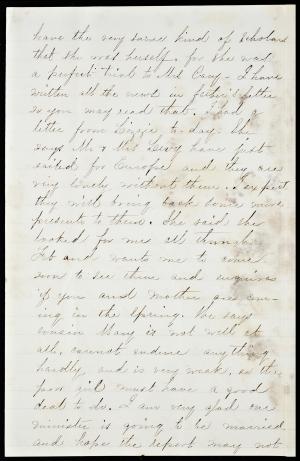 have the very same kind of scholars
that she was herself, for she was
a perfect trial to Mrs Cary - I have
written all the news in father's letter
so you may read that. I had a
letter from Lizzie to-day. She
says Mr & Mrs have just
sailed for Europe and they are
very lonely without them. I expect
they will bring back some nice
presents to them. She said she
looked for me all through
Feb and wants me to come
soon to see them and inquires
if you and mother are com-
ing in the Spring. She says
cousin Mary is not well at
all, cannot endure anything
hardly, and is very weak, so the
poor girl must have a good
deal to do. I am very glad our
minister is going to be married
and hope the report may not